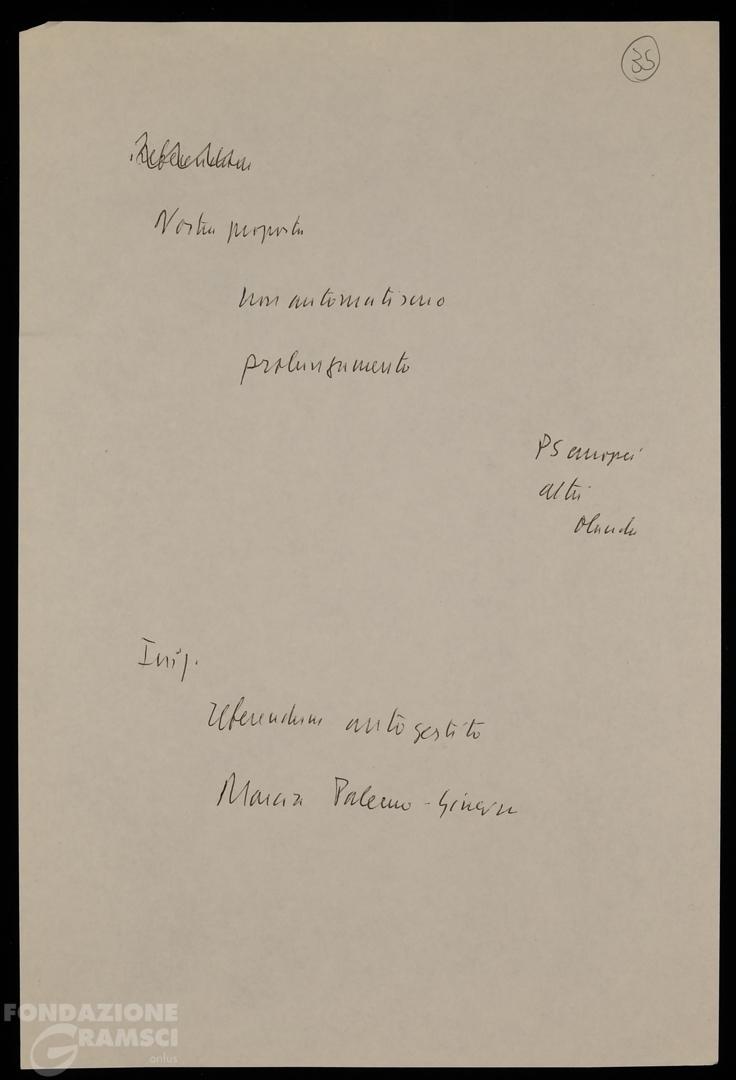 35
Referendum
Nostra proposta
non automatismo
prolungamento
PS europei
altri
Olanda
Iniz.
referendum autogestito
Marcia Palermo - Ginevra
FONDAZIONE
GRAMSCI
onlus